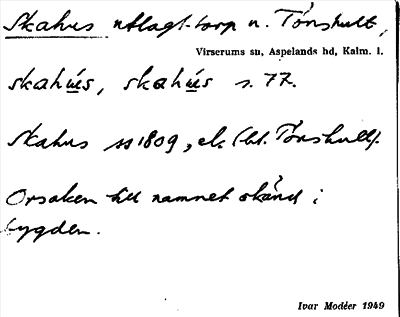 Skahus utlagt torp u. Tönshult,
Virserums sn, Aspelands hd, Kalm. l.
skahus, skahus s. 77.
Skahus ss 1809, ek (bl. Tönshult).
Orsaken till namnet okänd i
bygden.
Ivar Modéer 1949